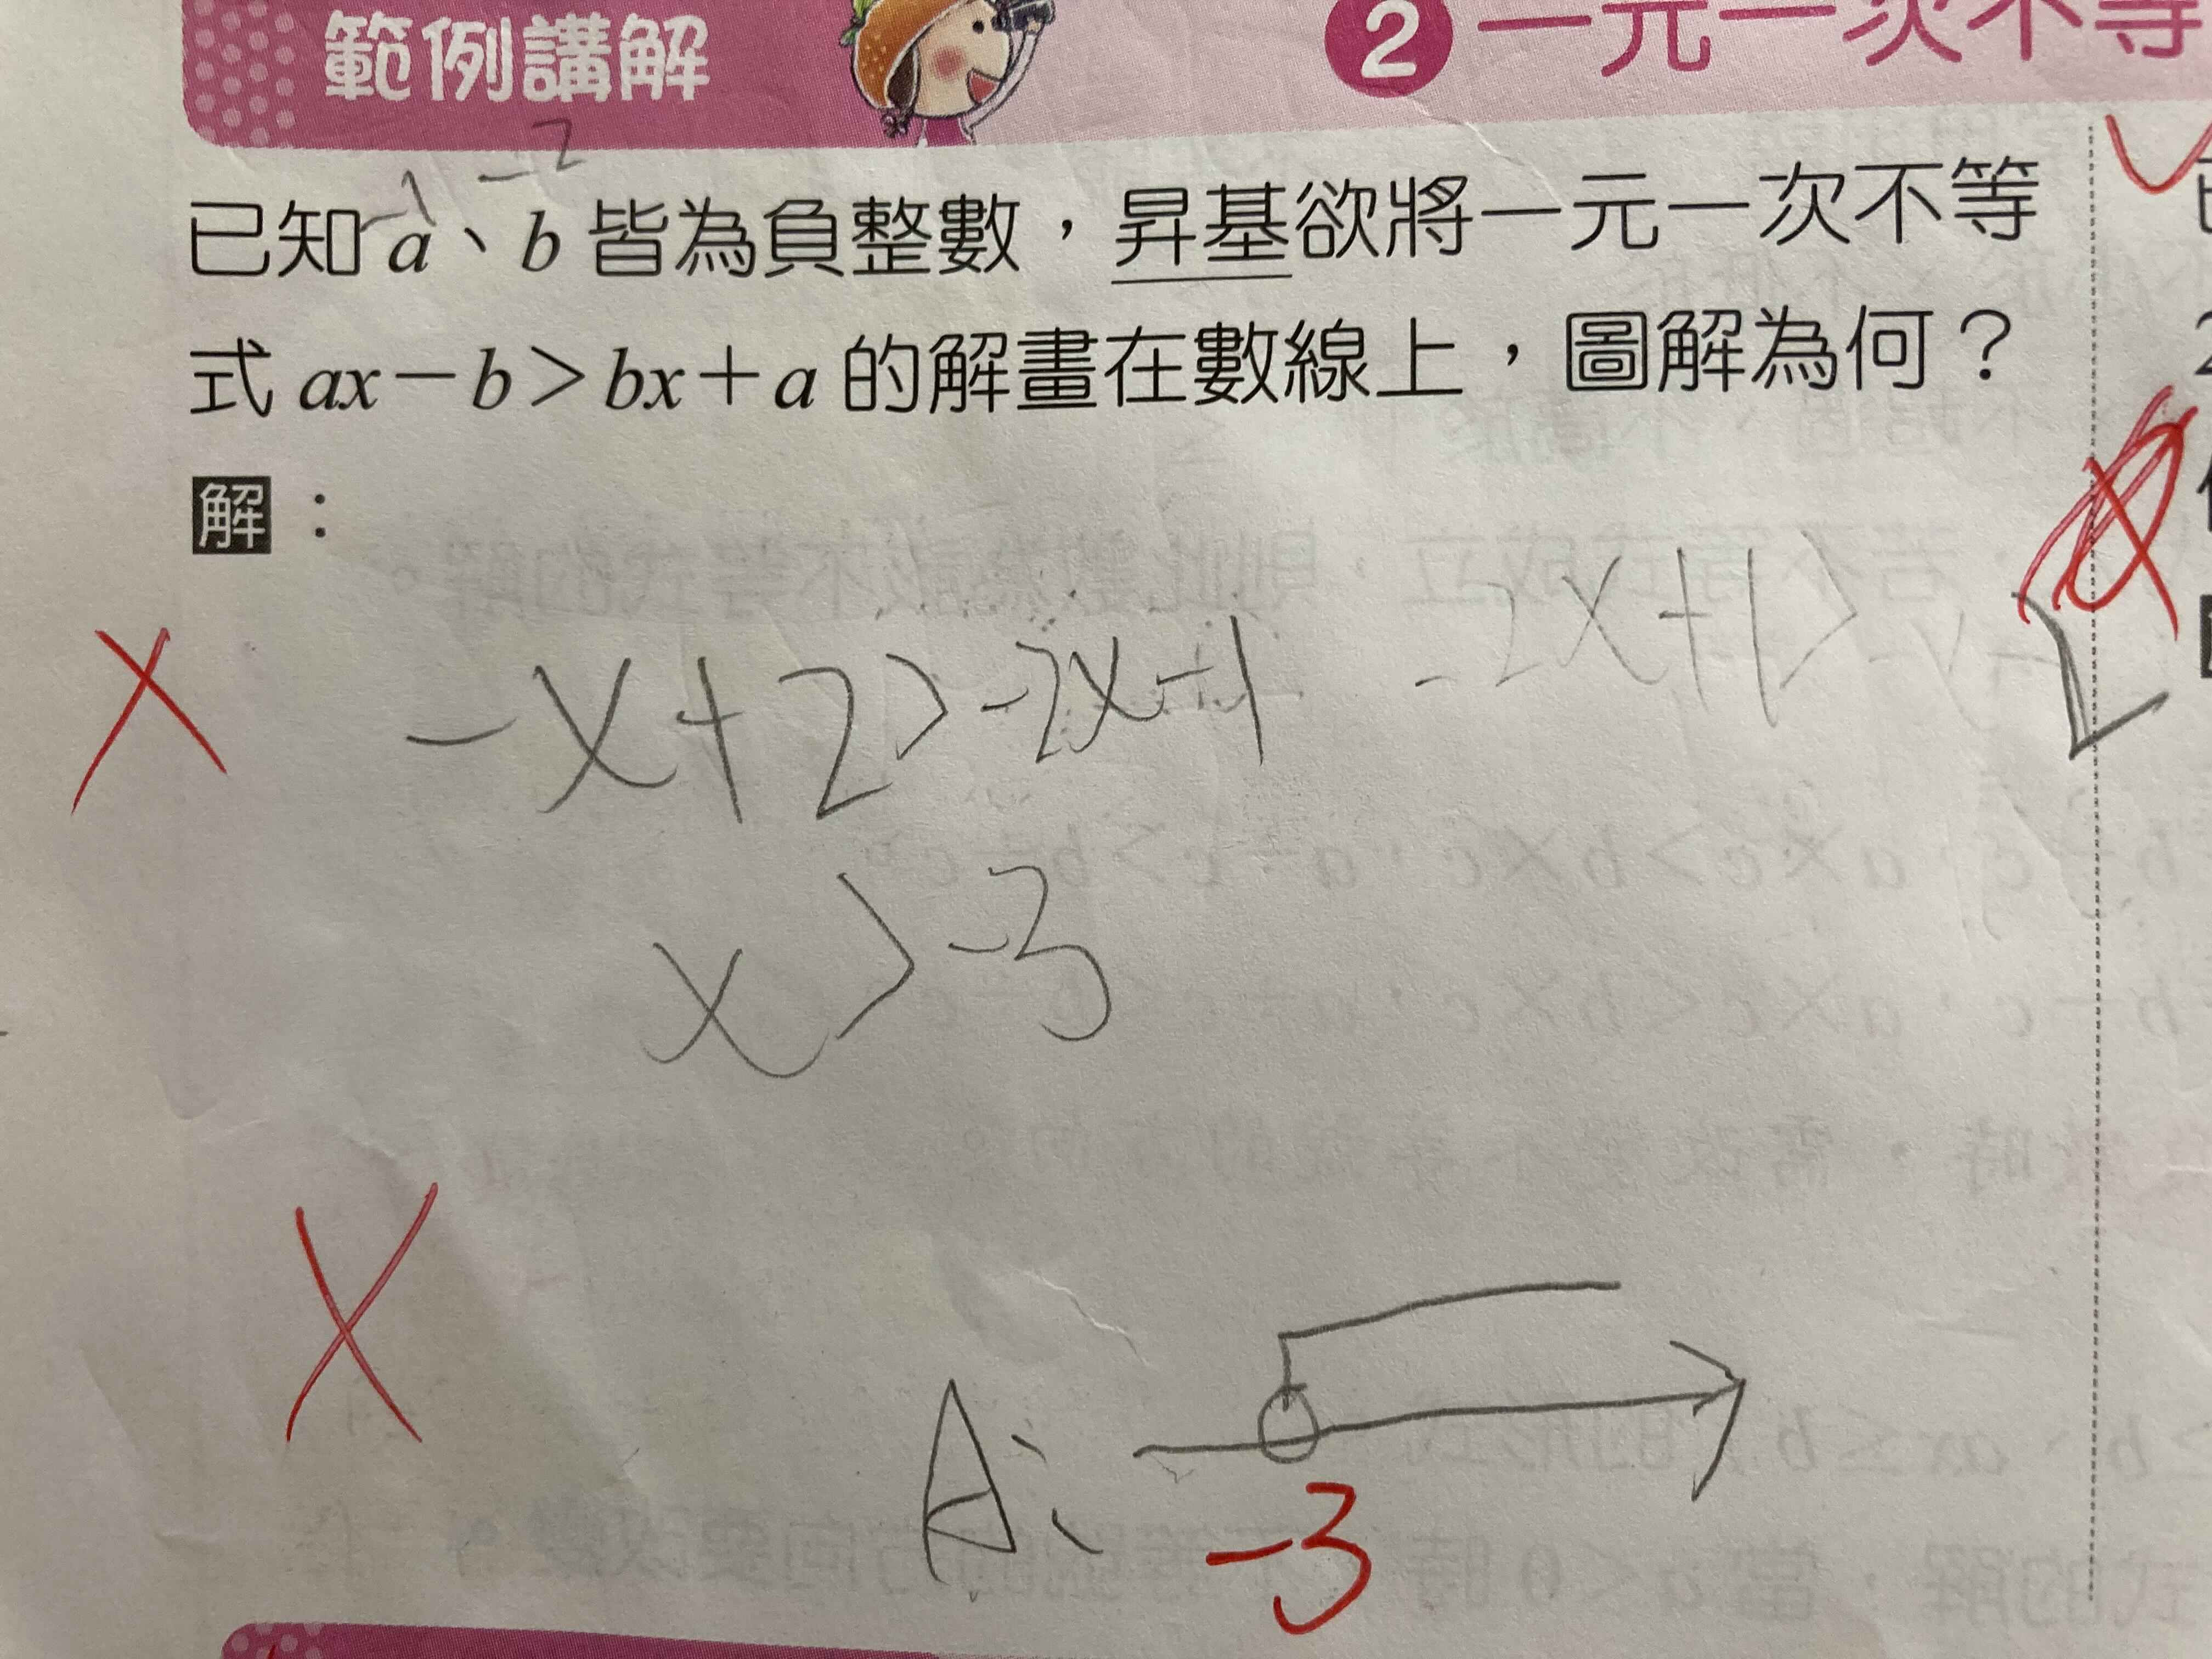 範例講解
2 一元一次不等
-1 -2
已知 a、b 皆為負整數，昇基欲將一元一次不等
式 ax－b＞bx＋a 的解畫在數線上，圖解為何？
解：
-2x+1>
-x+2>-2x-1
x>-3
A:
-3